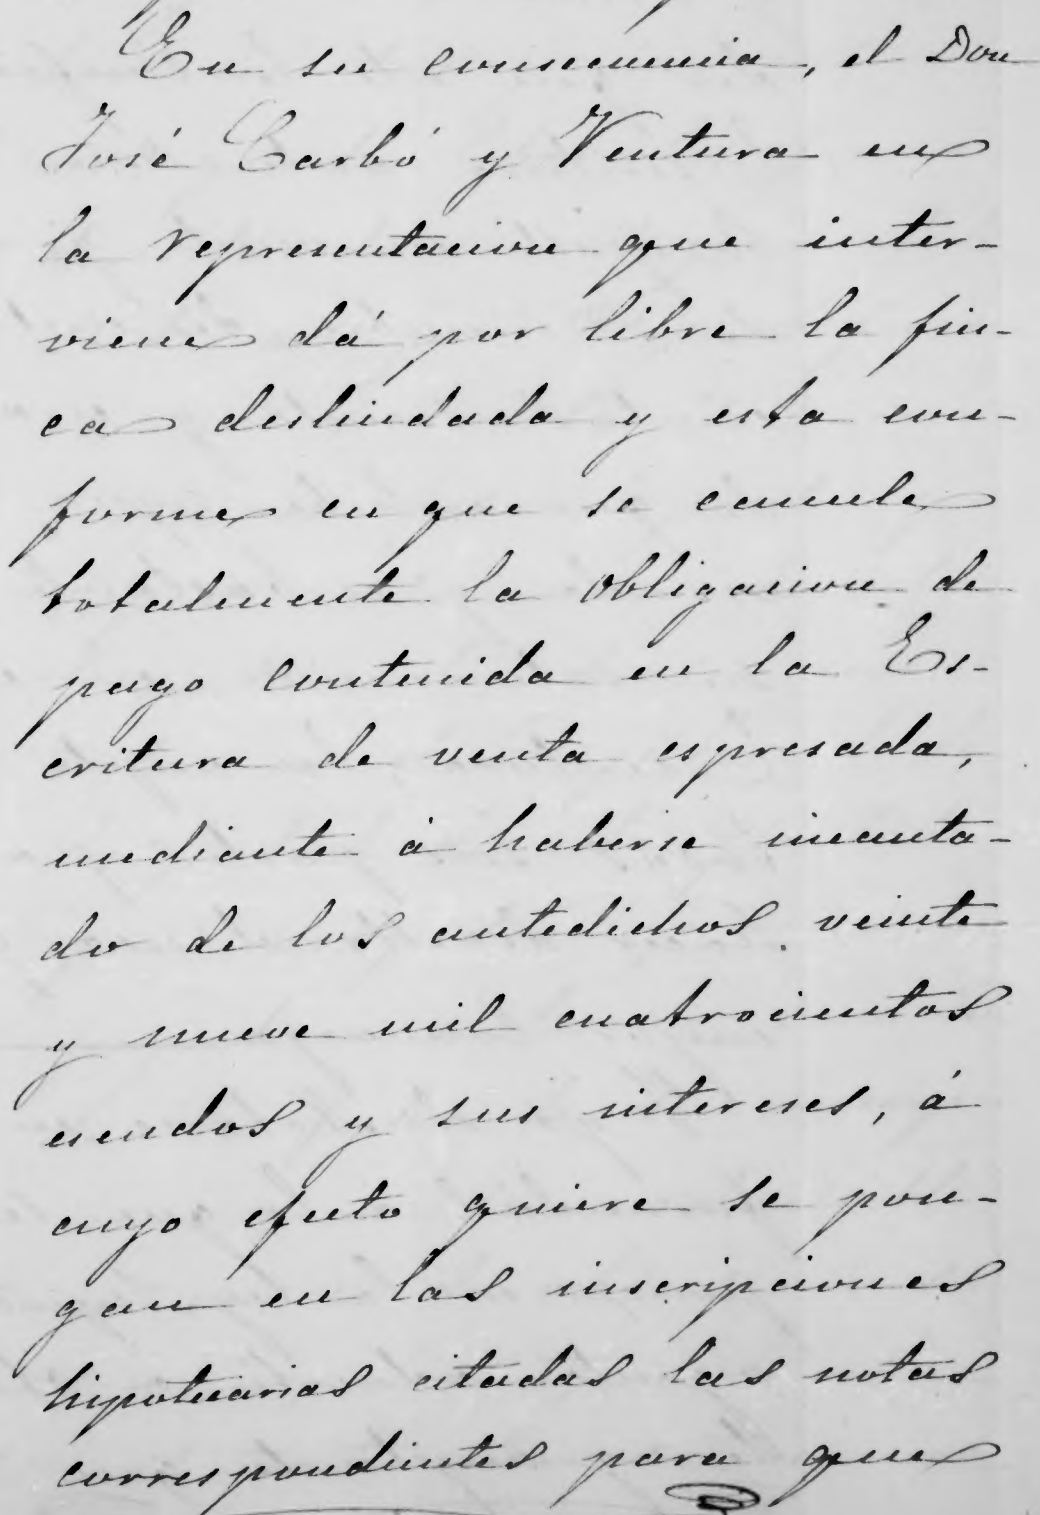 En su consecuencia, el Don
José Carbó y Ventura en
la representacion que inter-
viene dá por libre la fin-
ca deslindada y esta con-
forme en que se cancele
totalmente la obligacion de
pago contenida en la Es-
critura de venta espresada,
mediante á haberse incauta-
do de los antedichos veinte
y nueve mil cuatrocientos
escudos y sus intereses, á
cuyo efecto quiere se pon-
gan en las inscripciones
hipotecarias citadas las notas
correspondientes para que